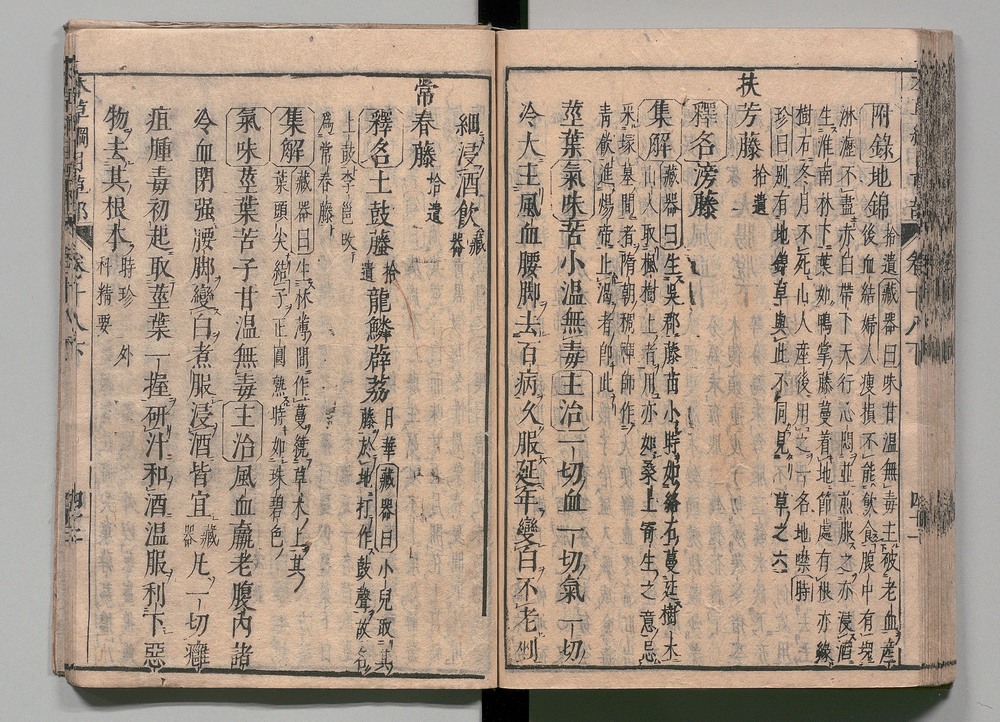 附錄地錦拾遺藏器曰味甘溫無毒主破老血產
後血結婦人瘦損不能飲食腹中有塊
淋瀝不盡赤白帶下天行心悶並煎服之亦浸酒
生淮南林下葉如鴨掌藤蔓着地節處有根亦緣
樹石冬月不死山人產後用之一名地噤時
珍曰别有地錦草與此不同見草之六
扶芳藤拾遺
釋名滂藤
集解藏器曰生吳郡藤苗小時如絡石蔓延樹木
山人取楓樹上者用亦如桑上寄生之意忌
采塚墓間者隋朝稠禪師作
青飲進煬帝止渴者即此
莖葉氣味苦小溫無毒主治一切血一切氣一切
冷大主風血腰脚去百病久服延年變白不老剉
細浸酒飲藏器
常春藤拾遺
釋名土鼓藤拾遺龍鱗薜荔日華藏器曰小兒取其
藤於地打作鼓聲故名
土鼓李邕改
爲常春藤
集解藏器曰生林薄間作蔓繞草木上其
葉頭尖結子正圓熟時如珠碧色
氣味莖葉苦子甘溫無毒主治風血羸老腹内諸
冷血閉强腰脚變白煮服浸酒皆宜藏器凡一切癰
疽腫毒初起取莖葉一握研汁和酒温服利下惡
物去其根本時珍外科精要
本草綱目草部
卷十八下